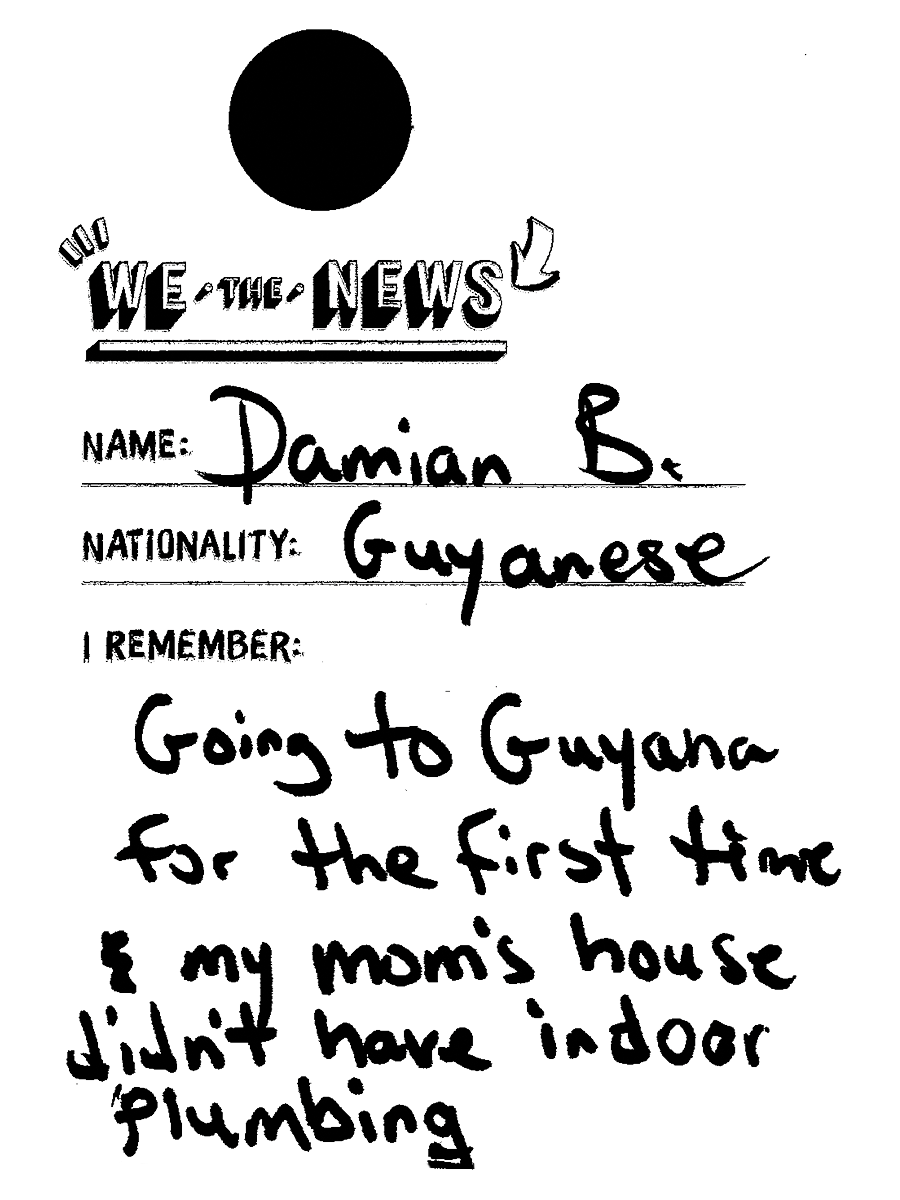 WE THE NEWS
NAME: Damian B.
NATIONALITY: Guyanese
I REMEMBER:
Going to Guyana
for the first time
& my mom's house
didn't have indoor
plumbing